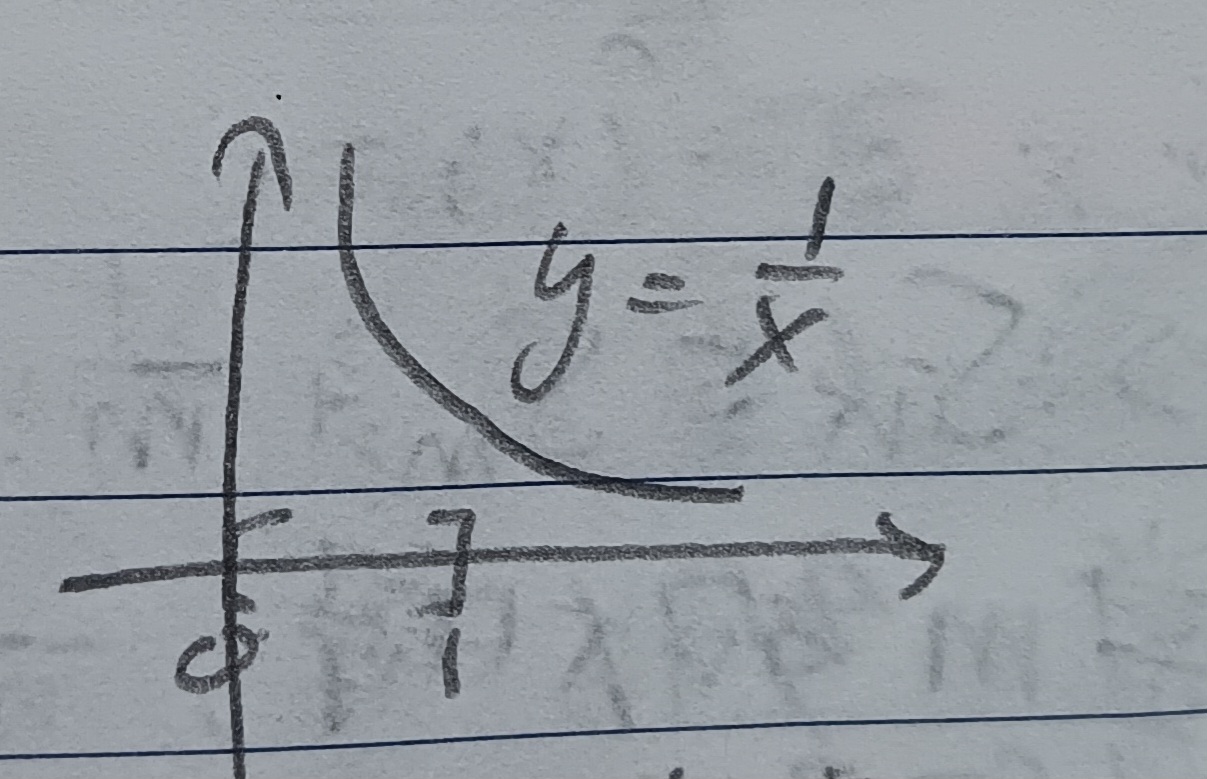 y = 1/x
[ ]
0 1